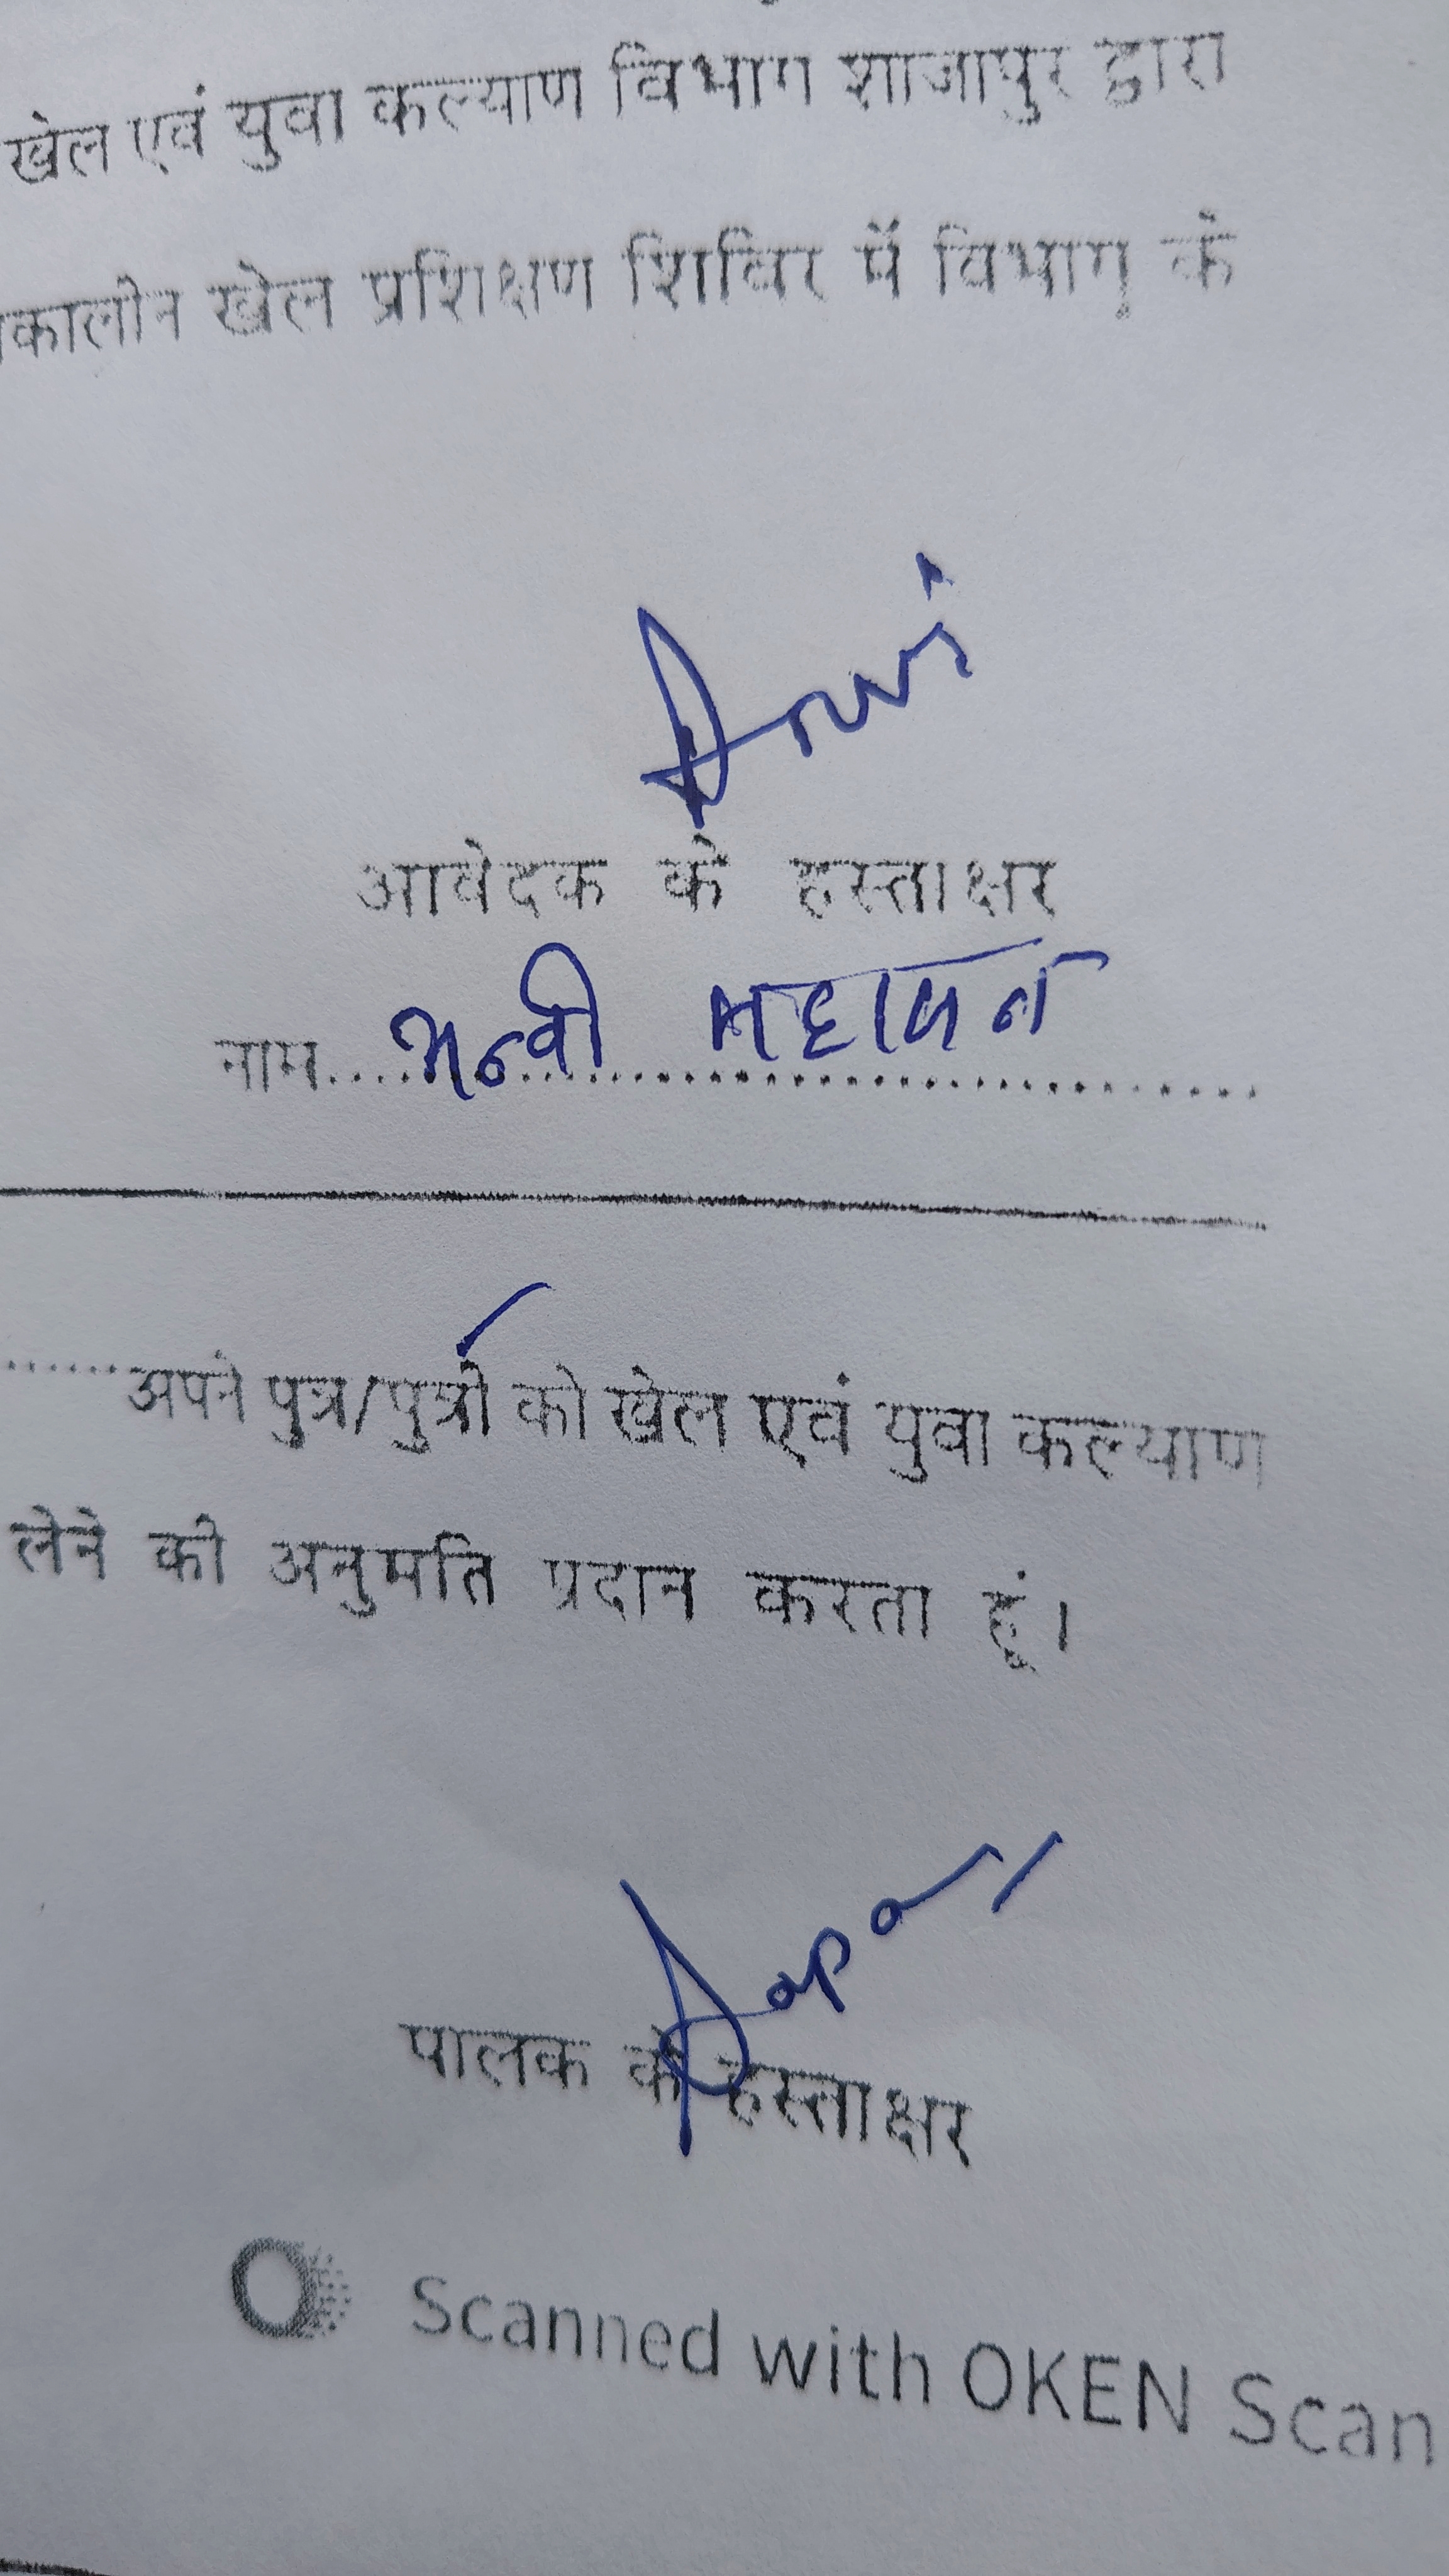 खेल एवं युवा कल्याण विभाग शाजापुर द्वारा
कालीन खेल प्रशिक्षण शिविर में विभाग के
Anvi
आवेदक के हस्ताक्षर
नाम.... अन्वी महाजन
......अपने पुत्र/पुत्री को खेल एवं युवा कल्याण
लेने की अनुमति प्रदान करता हूं।
पालक के हस्ताक्षर
Scanned with OKEN Scan